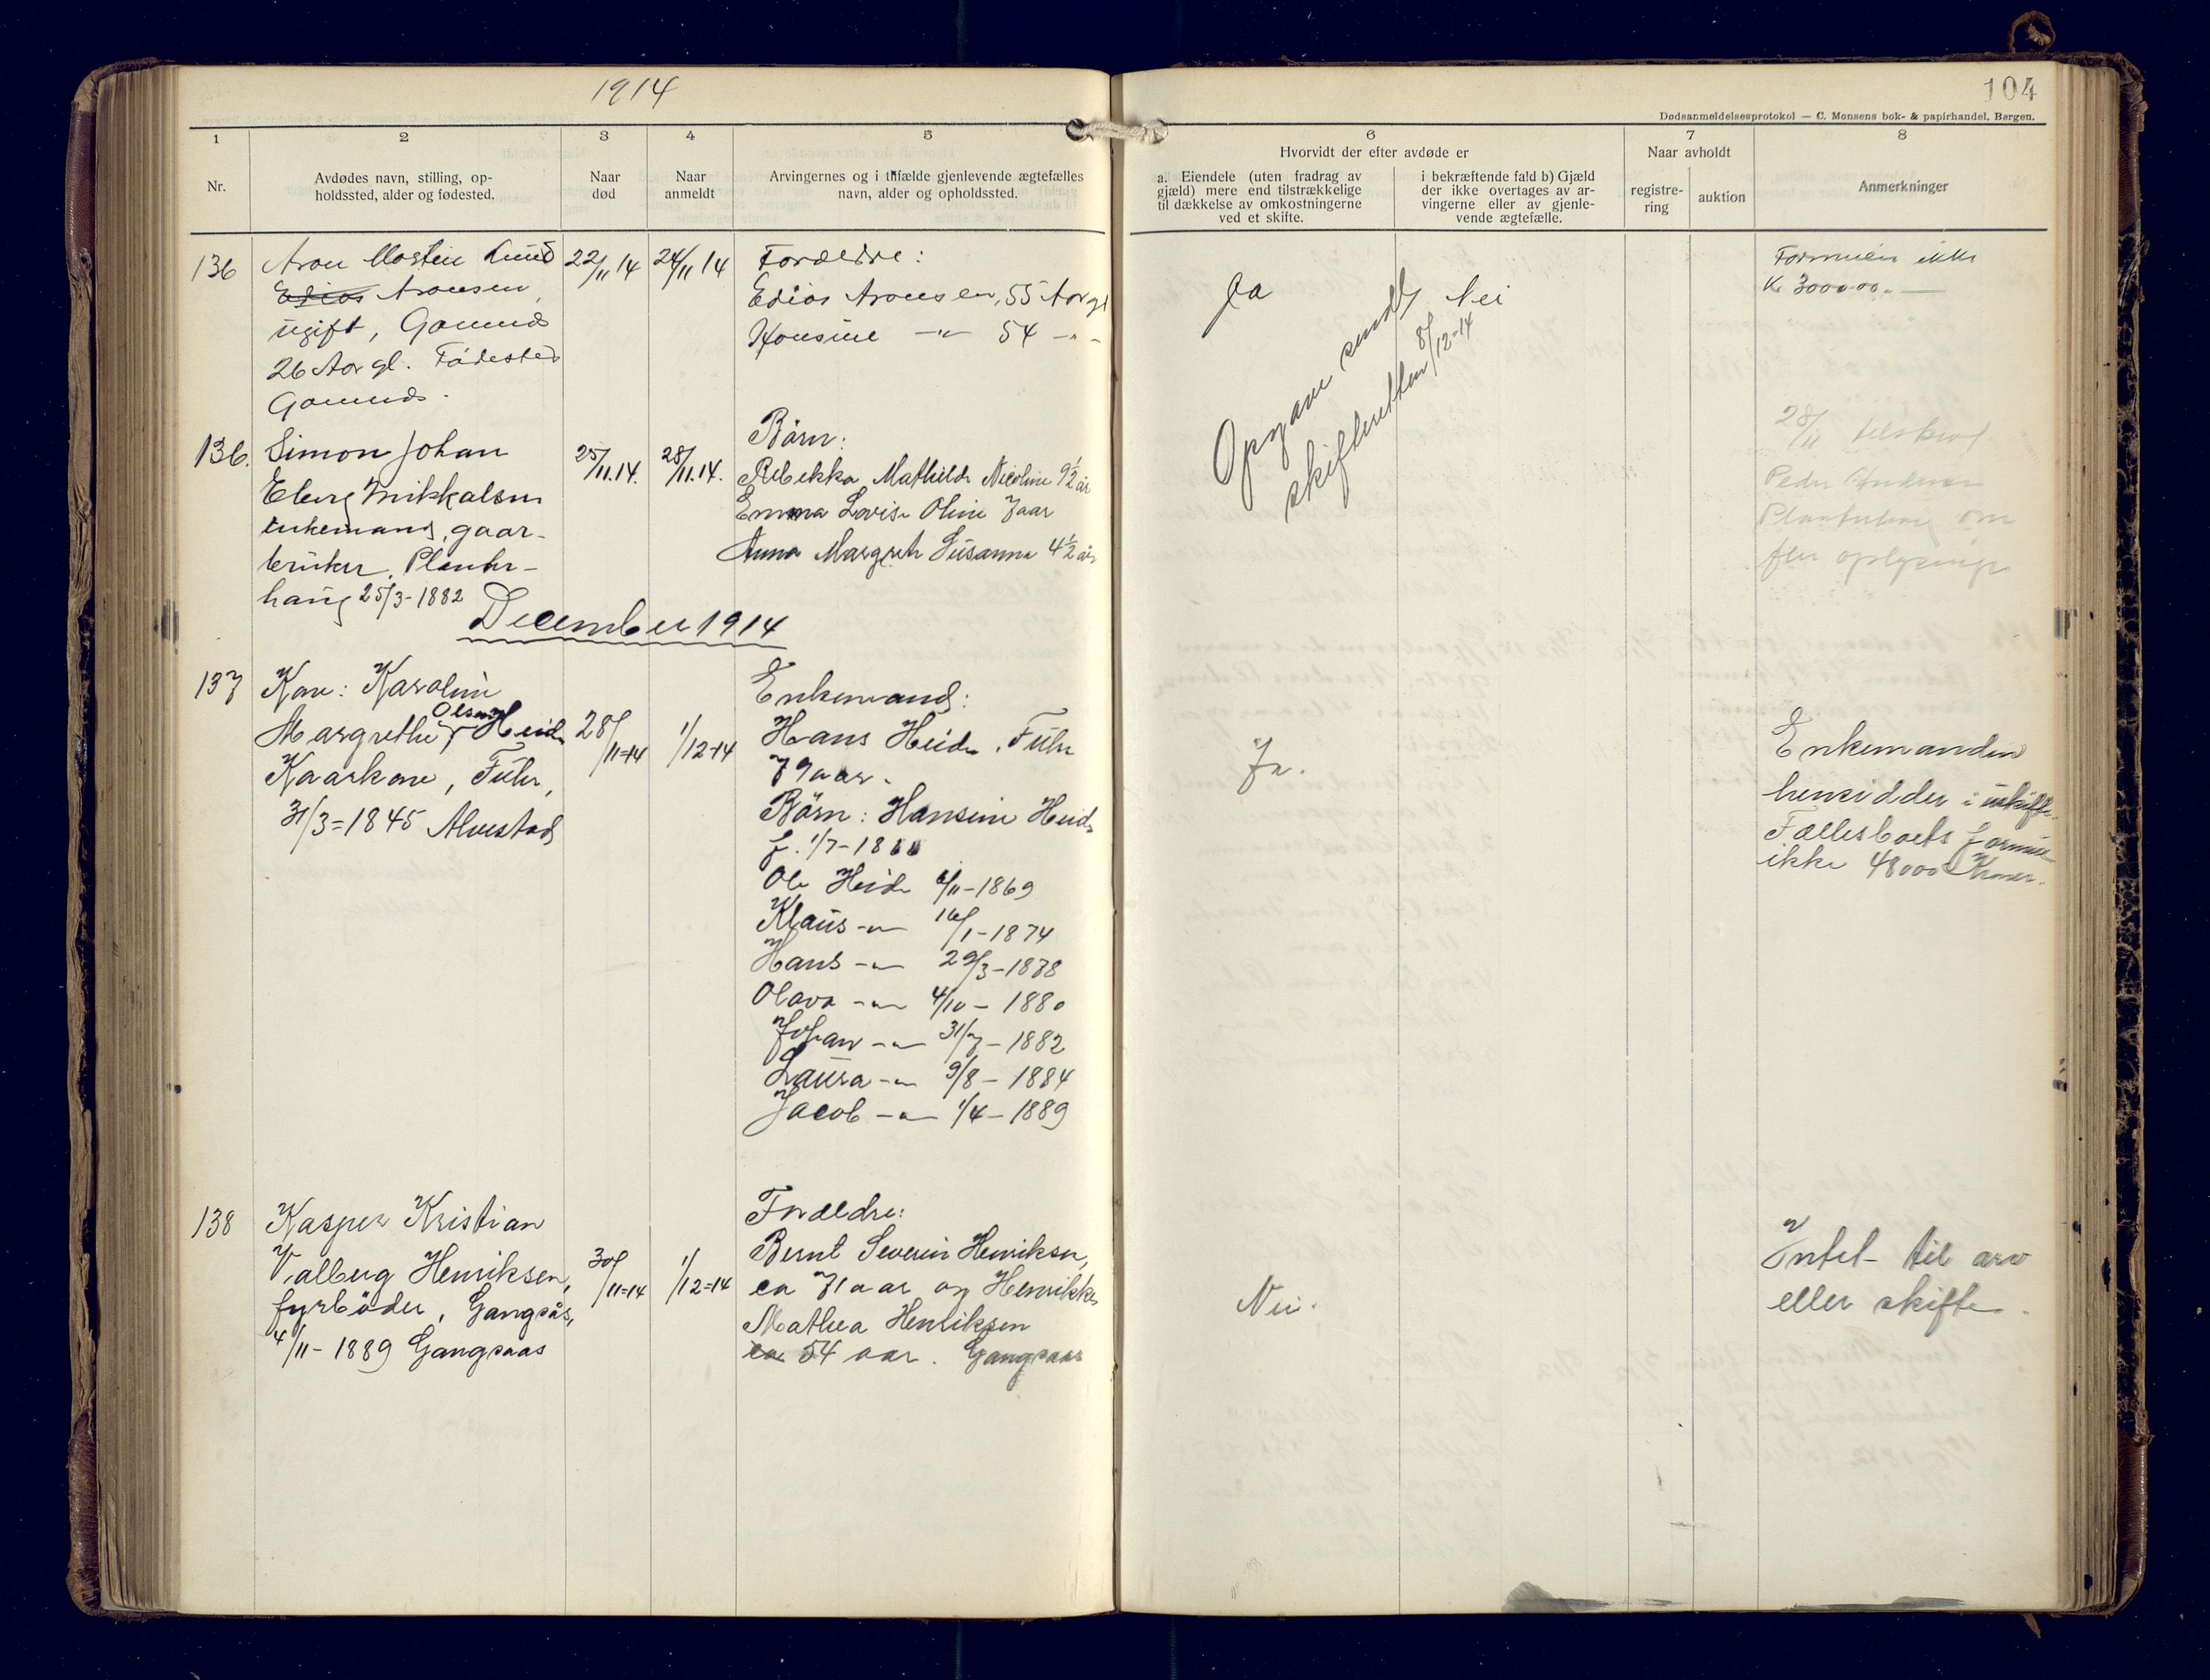 1914
104
Dødsanmeldelsesprotokol — C. Monsens bok- & papirhandel, Bergen.
1
2
3
4
5
6
7
8
Nr.
Avdødes navn, stilling, op-
holdssted, alder og fødested.
Naar
død
Naar
anmeldt
Arvingernes og i tilfælde gjenlevende ægtefælles
navn, alder og opholdssted.
Hvorvidt der efter avdøde er
a. Eiendele (uten fradrag av
gjæld) mere end tilstrækkelige
til dækkelse av omkostningerne
ved et skifte.
i bekræftende fald b) Gjæld
der ikke overtages av ar-
vingerne eller av gjenle-
vende ægtefælle.
Naar avholdt
registre-
ring
auktion
Anmerkninger
136
Aron Mostein Lund
Edias Aronsen,
ugift,
26 Aar gl. Fødested
22/11 14
24/11 14
Forældre:
Edias Aronsen, 55 Aar gl
54 -"-
Ja
Nei
Opgave sendt
skifteretten 8/12-14
Formuen ikke
Kr 3000.00.—
136.
Simon Johan
Eberg Mikkalsen
enkemand, gaar-
bruker, Planter-
haug 25/3-1882
25/11.14.
28/11.14.
Børn:
Rebekka Mathilde Nicoline 9½ år
Emma Lovise Oline 7 aar
Anna Margreth Susanna 4½ år
28/11 tilskrev
Peder
om
fler oplysninger
December 1914
137
Kone: Karoline
Margrethe Olsen Heide
Kaarkone,
31/3=1845 Alvestad
28/11=14
1/12-14
Enkemand:
Hans Heide,
79 aar.
Børn: Hansine Heide
f. 1/7-18
Ole Heide 6/11-1869
Klaus -"- 16/1-1874
Hans -"- 29/3-1878
Olava -"- 4/10-1880
Johan -"- 31/7-1882
Laura -"- 9/8-1884
Jacob -"- 1/4-1889
Ja.
Enkemanden
hensidder i uskifte.
Fællesboets formue
ikke 48000 Kroner.
138
Kasper Kristian
Valberg Henriksen,
fyrbøder, Gangsås,
4/11-1889 Gangsaas
30/11=14
1/12=14
Forældre:
Bernt Severin Henriksen,
ca 71 aar og Henrikke
Mathea Henriksen
ca 54 aar. Gangsaas
Nei.
Intet til arv
eller skifte.